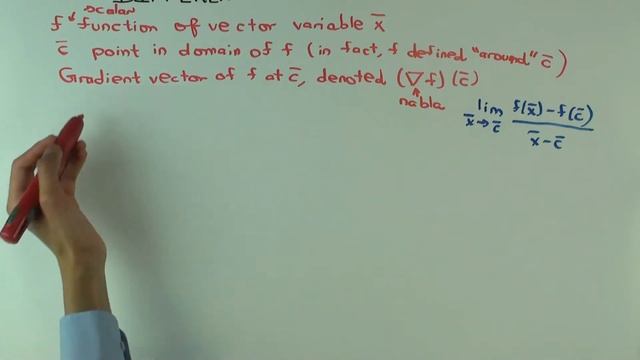 scalar
f function of vector variable x̄
c̄ point in domain of f (in fact, f defined "around" c̄)
Gradient vector of f at c̄, denoted (∇f)(c̄)
nabla
lim x̄→c̄ f(x̄)-f(c̄) / x̄-c̄